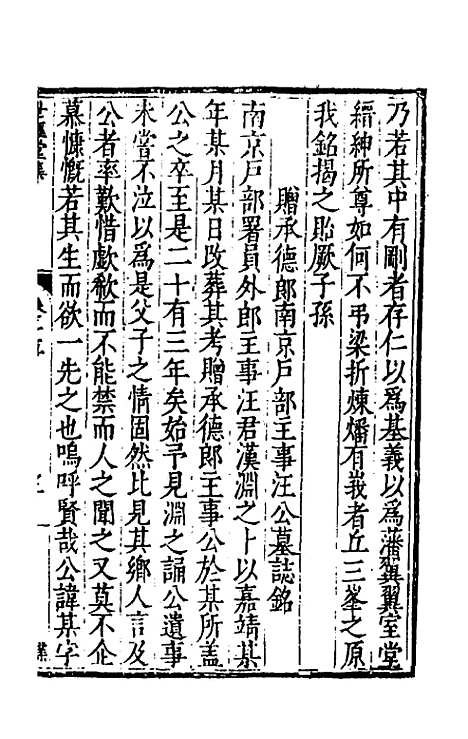 乃若其中有剛者存仁以爲基義以爲藩翼翼室堂
縉紳所尊如何不弔梁折煉燔有峩者丘三峯之原
我銘揭之貽厥子孫
贈承德郎南京戶部主事汪公墓誌銘
南京戶部署員外郎主事汪君漢淵之卜以嘉靖某
年某月某日改葬其考贈承德郎主事公於某所蓋
公之卒至是二十有三年矣始予見淵之誦公遺事
未嘗不泣以爲是父子之情固然比見其鄉人言及
公者率歎惜歔欷而不能禁而人之聞之又莫不企
慕慷慨若其生而欲一先之也嗚呼賢哉公諱某字